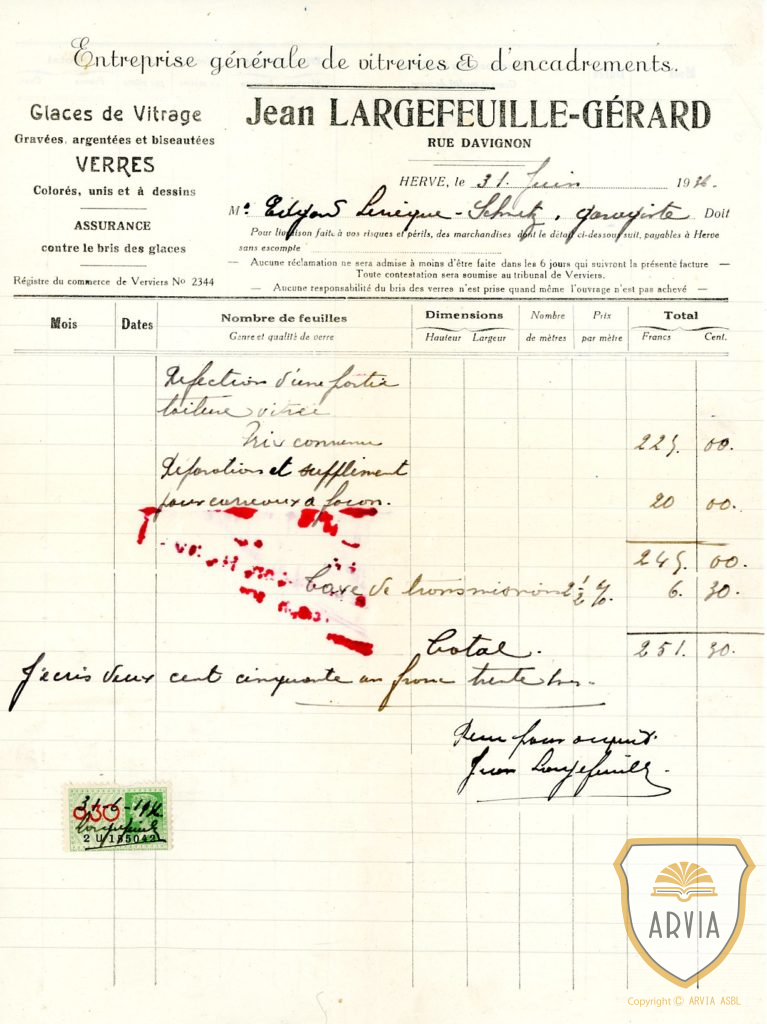 Entreprise générale de vitreries & d'encadrements.
Glaces de Vitrage
Gravées, argentées et biseautées
VERRES
Colorés, unis et à dessins
ASSURANCE
contre le bris des glaces
Régistre du commerce de Verviers No 2344
Jean LARGEFEUILLE-GÉRARD
RUE DAVIGNON
HERVE, le 31. Juin 19
Mr garagiste Doit
Pour livraison faite à vos risques et périls, des marchandises dont le détail ci-dessous suit, payables à Herve
sans escompte
— Aucune réclamation ne sera admise à moins d'être faite dans les 6 jours qui suivront la présente facture —
Toute contestation sera soumise au tribunal de Verviers.
— Aucune responsabilité du bris des verres n'est prise quand même l'ouvrage n'est pas achevé —
Mois Dates Nombre de feuilles Dimensions Nombre Prix Total
Genre et qualité de verre Hauteur Largeur de mètres par mètre Francs Cent.
Refection d'une partie
toiture vitrée
Prix convenu 225. 00.
Réparation et supplément
pour carreaux a façon. 20 00.
245. 00.
Taxe de transmission 2 1/2 % 6. 30.
Total. 251. 30.
J'écris deux cent cinquante un franc trente
Pour acquit.
Jean Largefeuille
0.30
31-6-19
Largefeuille
2 U 185042
ARVIA
Copyright © ARVIA ASBL